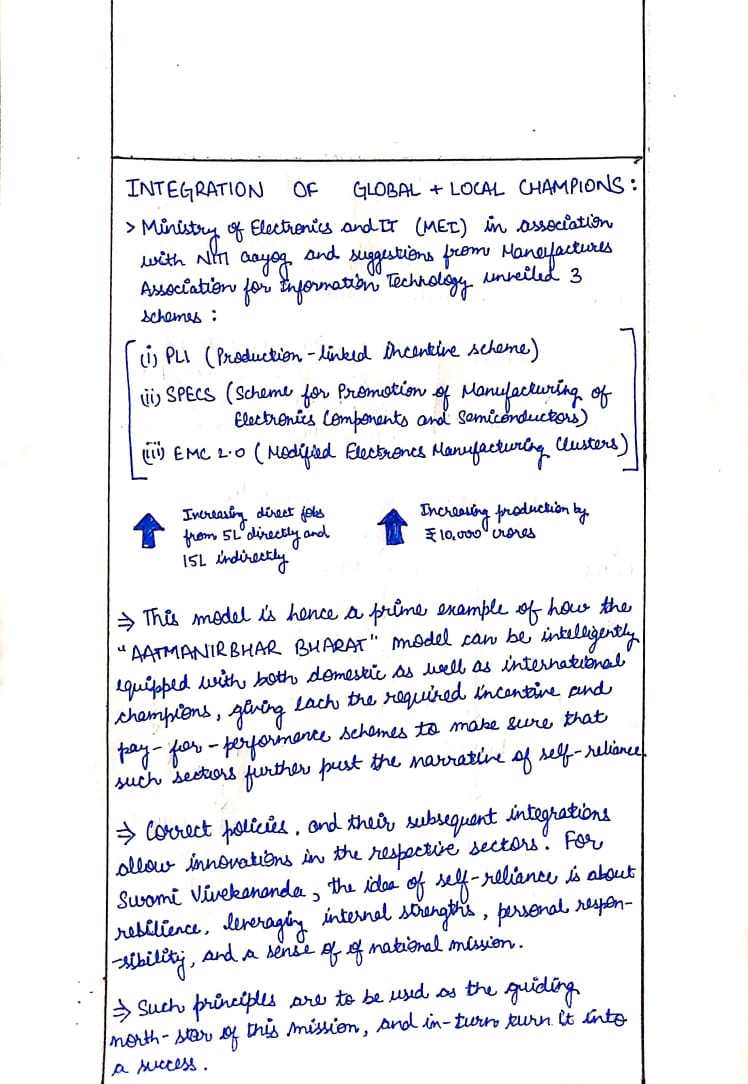 INTEGRATION OF GLOBAL + LOCAL CHAMPIONS :
> Ministry of Electronics and IT (MEI) in association
with NITI aayog and suggestions from Manufactures
Association for Information Technology unveiled 3
schemes :
(i) PLI (Production-linked incentive scheme)
(ii) SPECS (Scheme for Promotion of Manufacturing of
Electronics Components and Semiconductors)
(iii) EMC 2.0 (Modified Electroncs Manufacturing Clusters)
Increasing direct jobs
from 5L directly and
15L indirectly
Increasing production by
₹10,000 crores
⇒ This model is hence a prime example of how the
"AATMANIRBHAR BHARAT" model can be intelligently
equipped with both domestic as well as international
champions, giving each the required incentive and
pay-for-performance schemes to make sure that
such sectors further pust the narrative of self-reliance.
⇒ Correct policies, and their subsequent integrations
allow innovations in the respective sectors. For
Swami Vivekananda, the idea of self-reliance is about
resilience, leveraging internal strengths, personal respon-
-sibility, and a sense of of national mission.
⇒ Such principles are to be used as the guiding
north-star of this mission, and in-turn turn it into
a success.